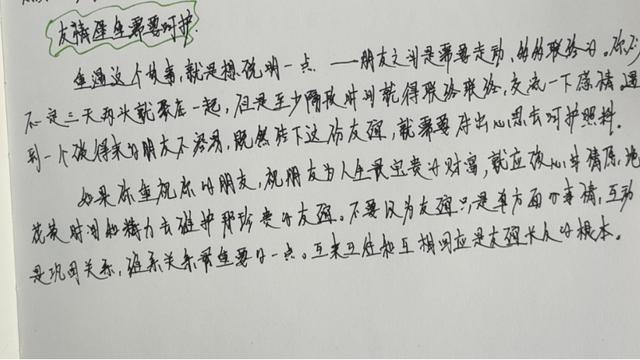 友情还是需要呵护.
重温这个故事,就是想说明一点——朋友之间是需要走动、的的联络的。你
不一定三天两次就聚在一起,但是至少隔段时间就得联络联络,交流一下感情,遇
到一个谈得来的朋友不容易,既然结下这份友谊,就需要付出心思去呵护照料。
如果你重视你的朋友,视朋友为人生最宝贵的财富,就应该心甘情愿地
花费时间和精力去维护那珍贵的友谊。不要以为友谊只是单方面的事情,互动
是巩固关系,维系关系最重要的一点。互来互往和互相回应是友谊长久的根本。